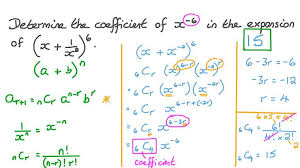 Determine the coefficient of x⁻⁶ in the expansion
of (x + 1/x²)⁶.
(a + b)ⁿ
aᵣ₊₁ = ₙCᵣ aⁿ⁻ʳ bʳ
1/xⁿ = x⁻ⁿ
ₙCᵣ = n!/((n-r)! r!)
(x + x⁻²)⁶
₆Cᵣ (x⁶⁻ʳ)(x⁻²)ʳ
₆Cᵣ x^(6-r+(-2r))
₆Cᵣ x^(6-3r)
₆C₄ x⁻⁶
coefficient
15
6-3r = -6
-3r = -12
r = 4
6 x 5 x 4!
6!
4! x 2!
₆C₄ = 15